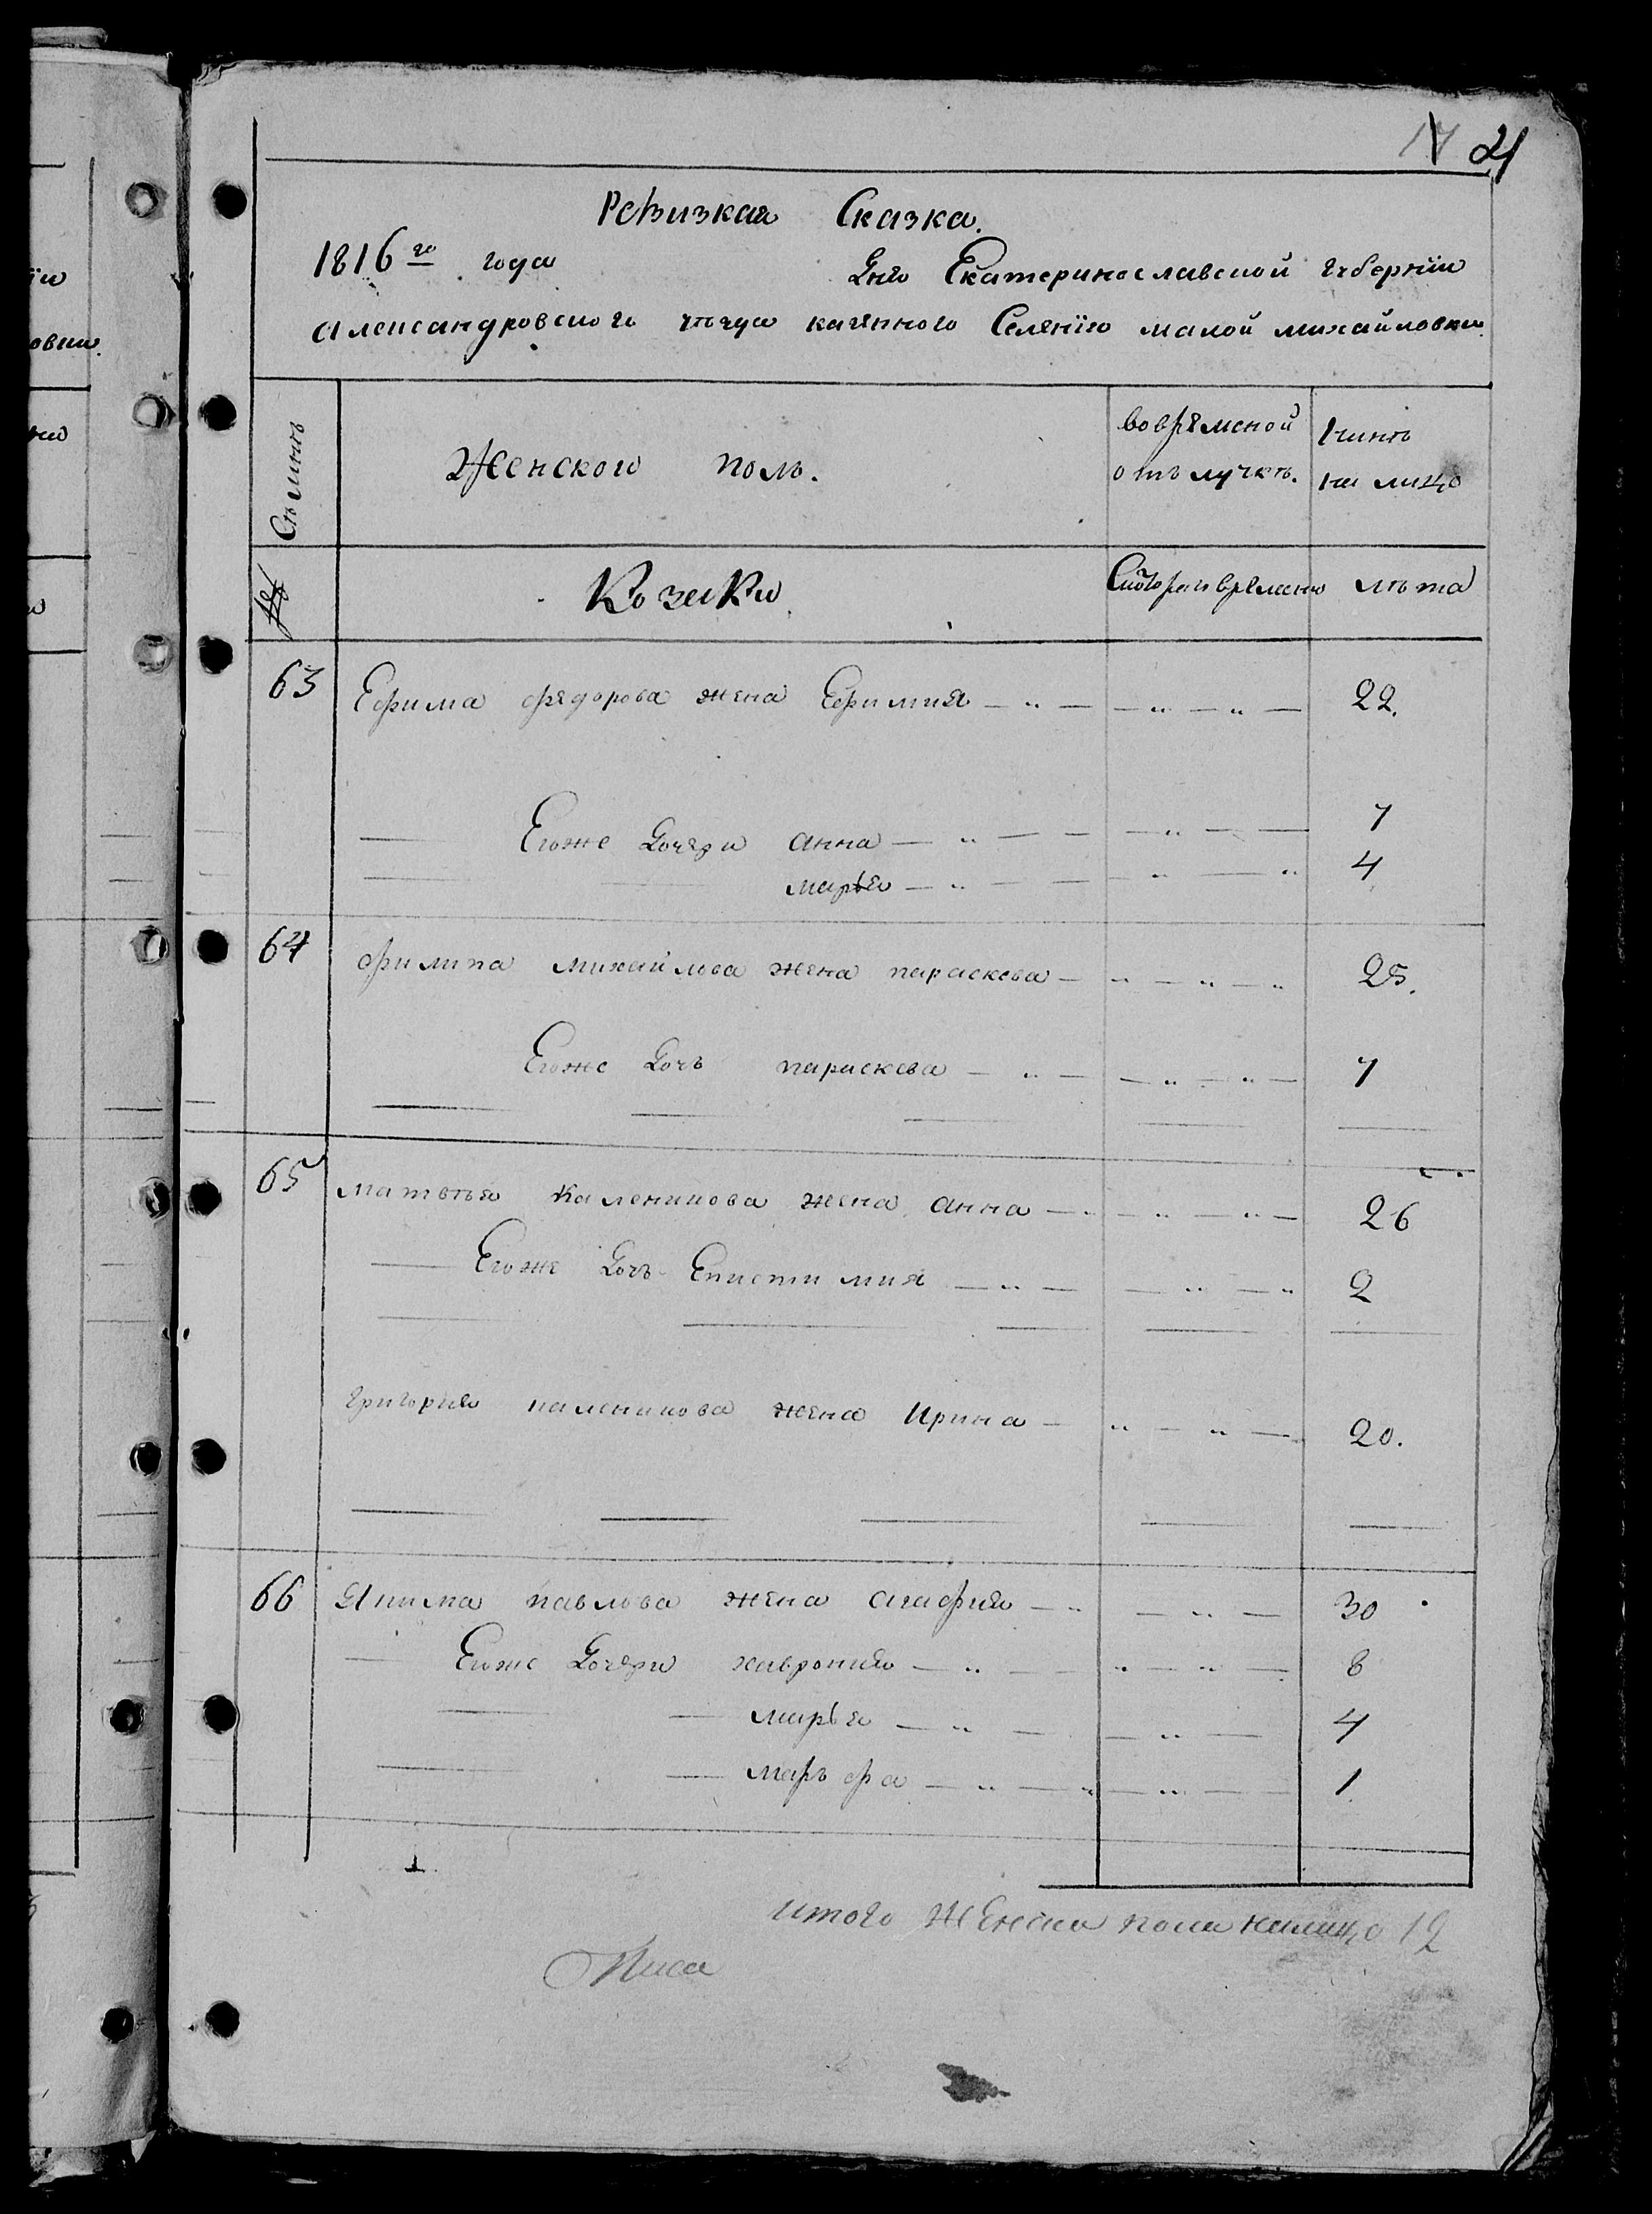 21
Ревизкая Сказка.
1816го года Дня Екатеринославской губернїи
александровского уѣзда казенного Селенїя малой михайловки.
Съминъ
Женского полъ.
вовремѣной
отълучкѣ.
нинѣ
на лицо
№
Козаки
Скоторого времени
лѣта
63 Ефима федорова жена Ефимия 22.
Егоже Дочери анна 7
марья 4
64 филипа михайлова жена параскева 25.
Егоже Дочь параскева 7
65 матвѣя каленикова жена анна 26
Егоже Дочь Епистимия 2
григория каленикова жена Ирина 20.
66 Якима павлова жена агафия 30
Егоже Дочери хаврония 8
марья 4
маръфа 1
итого женска пола налицо 12